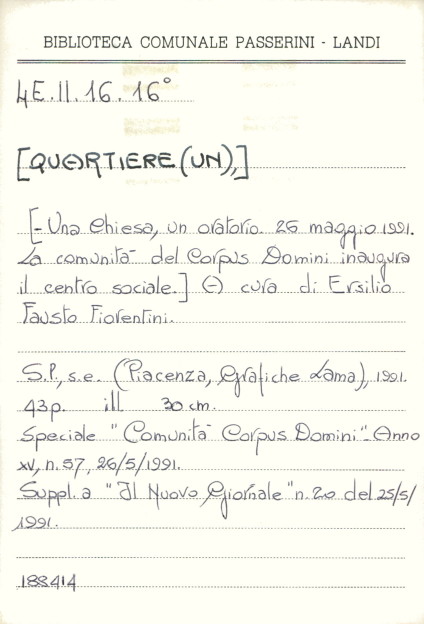 BIBLIOTECA COMUNALE PASSERINI - LANDI
4E.II.16.16°
[QUARTIERE (UN),]
[- Una chiesa, un oratorio. 26 maggio 1991.
La comunità del Corpus Domini inaugura
il centro sociale.] A cura di Ersilio
Fausto Fiorentini.
S.l., s.e. (Piacenza, Grafiche Lama), 1991.
43 p. ill. 30 cm.
Speciale "Comunità Corpus Domini" - Anno
XV, n. 57, 26/5/1991.
Suppl. a "Il Nuovo Giornale" n. 20 del 25/5/
1991.
188414